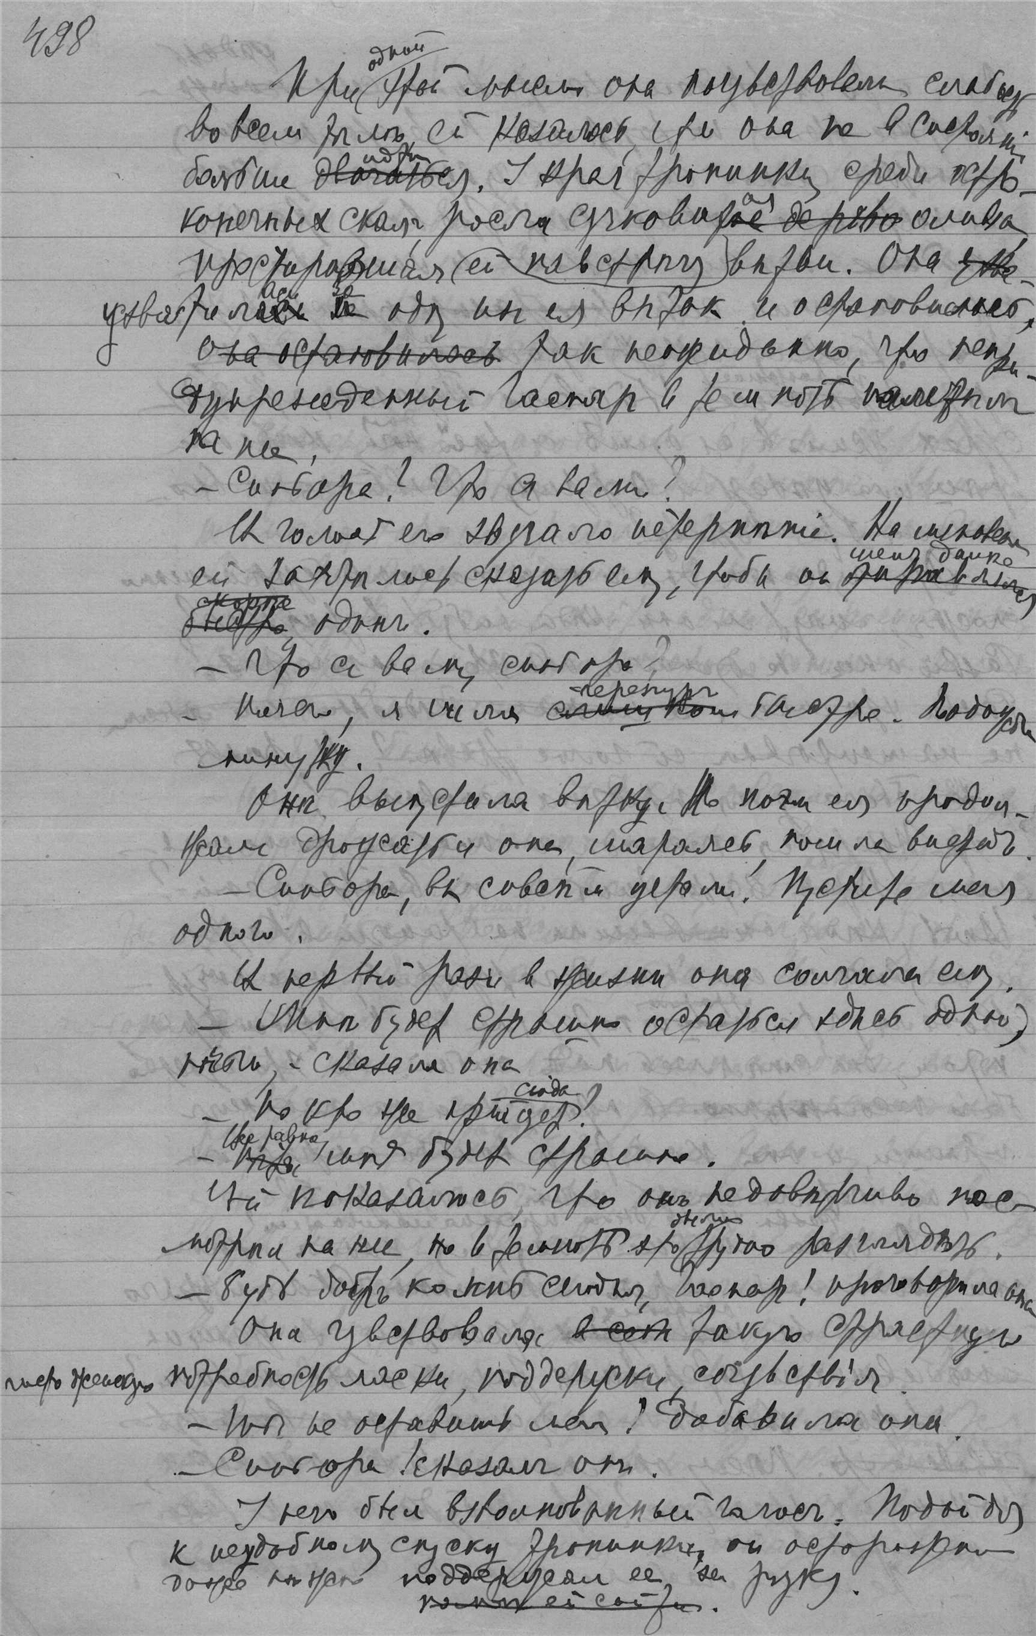 498
При одной этой мысли она почувствовала слабость
во всем теле, ей казалось, что она не в состояніи
больше двигаться идти. У края тропинки, среди остро-
конечных скал, росла сучковатое ая дерево олива,
простиравшая ей навстречу ветви. Она ухва-
ухватилась за одну из ея веток и остановилась,
Она остановилась так неожиданно, что непре-
дупрежденный Гаспар в темноте налетел
на нее.
– Синьора! Что с вами?
И голос его звучал нетерпеніе. На мгновенье
ей захотелось сказать ему, чтобы он шел дальше отправлялся
скорее быстро, один.
– Что с вами, синьора?
– Ничего, я шла слишком чересчур быстро. Подождем
минутку.
Она выпустила ветку. Но ноги ея продол-
жали дрожать и она, шатаясь, пошла вперед.
– Синьора, вы совсем устали! Пустите меня
одного.
И первый раз в жизни она солгала ему.
– Мне будет страшно остаться здесь одной,
ночью, – сказала она
– Но кто же придет сюда?
– Все равно, мне будет страшно.
Ей показалось, что он недоверчиво пос-
мотрел на нее, но в темноте это было трудно разглядеть.
– Будь добр ко мне сегодня, Гаспар! проговорила она
Она чувствовала в себе такую страстную
чисто женскую потребность ласки, поддержки, сочувствія.
– Ты не оставишь меня! добавила она.
– Синьора! сказал он.
У него был взволнованный голос. Подойдя
к неудобному спуску тропинки, он осторожно
даже нежно поддержал ее за руку.
помог ей сойти.